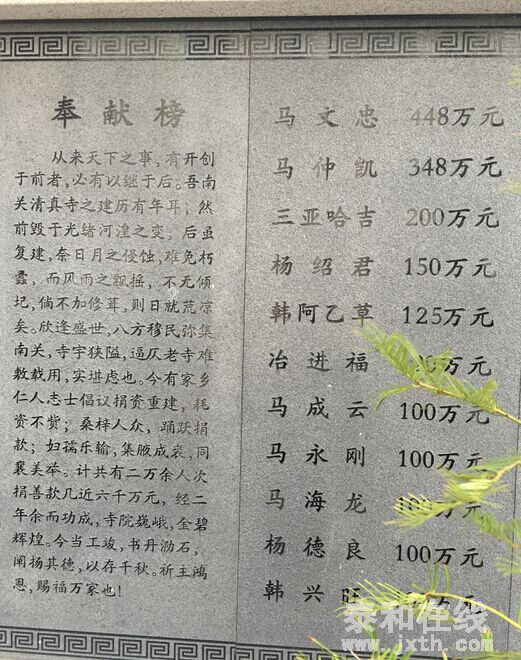 奉献榜
从来天下之事,有开创
于前者,必有以继于后。吾南
关清真寺之建历有年耳;然
前毁于光绪河湟之变,后虽
复建,奈日月之侵蚀,难免朽
蠹,而风雨之飘摇,不无倾
圮,倘不加修葺,则日就荒凉
矣。欣逢盛世,八方穆民弥集
南关,寺宇狭隘,逼仄老寺难
敷载用,实堪虑也。今有家乡
仁人志士倡议捐资重建,耗
资不赀;桑梓人众,踊跃捐
款;妇孺乐输,集腋成裘,同
襄美举。计共有二万余人次
捐善款几近六千万元,经二
年余而功成,寺院巍峨,金碧
辉煌。今当工竣,书丹泐石,
阐扬其德,以存千秋。祈主鸿
恩,赐福万家也!
马文忠 448万元
马仲凯 348万元
三亚哈吉 200万元
杨绍君 150万元
韩阿乙草 125万元
冶进福 万元
马成云 100万元
马永刚 100万元
马海龙 万元
杨德良 100万元
韩兴旺 万元
泰和在线
www.jxth.com